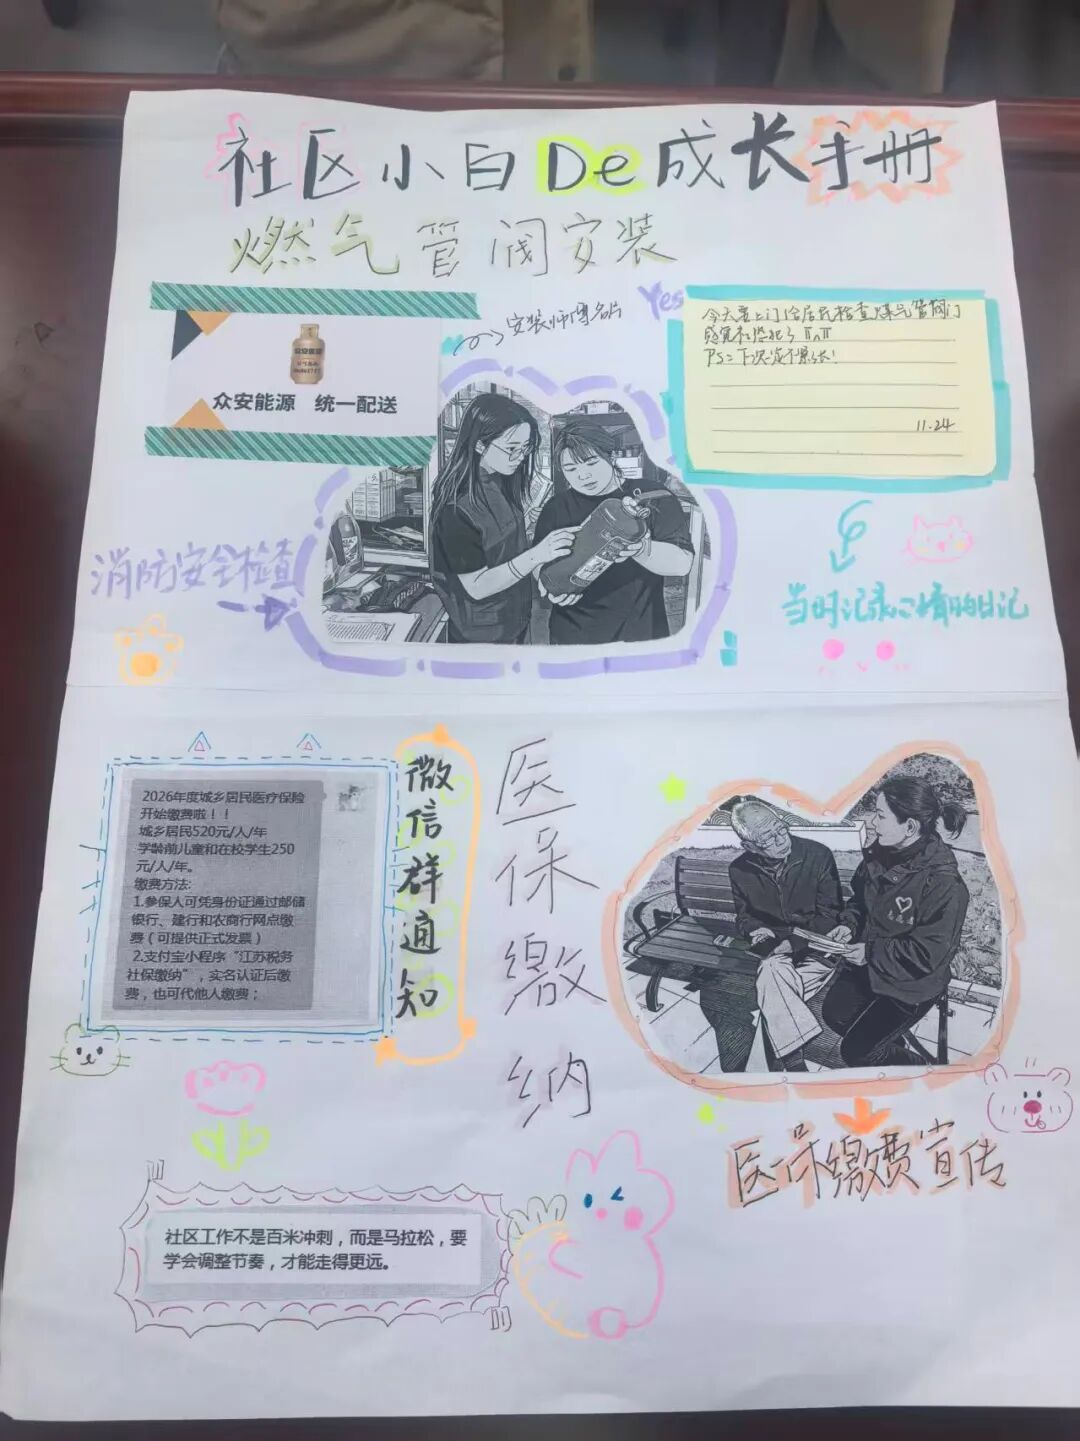 社区小白De成长手册
燃气管阀安装
众安能源 统一配送
安装师傅名片
Yes
今天要上门给居民检查煤气管阀门
感觉社恐犯了
PS：下次一定不紧张！
11.24
消防安全检查
当时记录心情的日记
2026年度城乡居民医疗保险
开始缴费啦！！
城乡居民520元/人/年
学龄前儿童和在校学生250
元/人/年。
缴费方法:
1.参保人可凭身份证通过邮储
银行、建行和农商行网点缴
费（可提供正式发票）
2.支付宝小程序“江苏税务
社保缴纳”，实名认证后缴
费，也可代他人缴费；
微信群通知
医保缴纳
医保缴费宣传
社区工作不是百米冲刺，而是马拉松，要
学会调整节奏，才能走得更远。